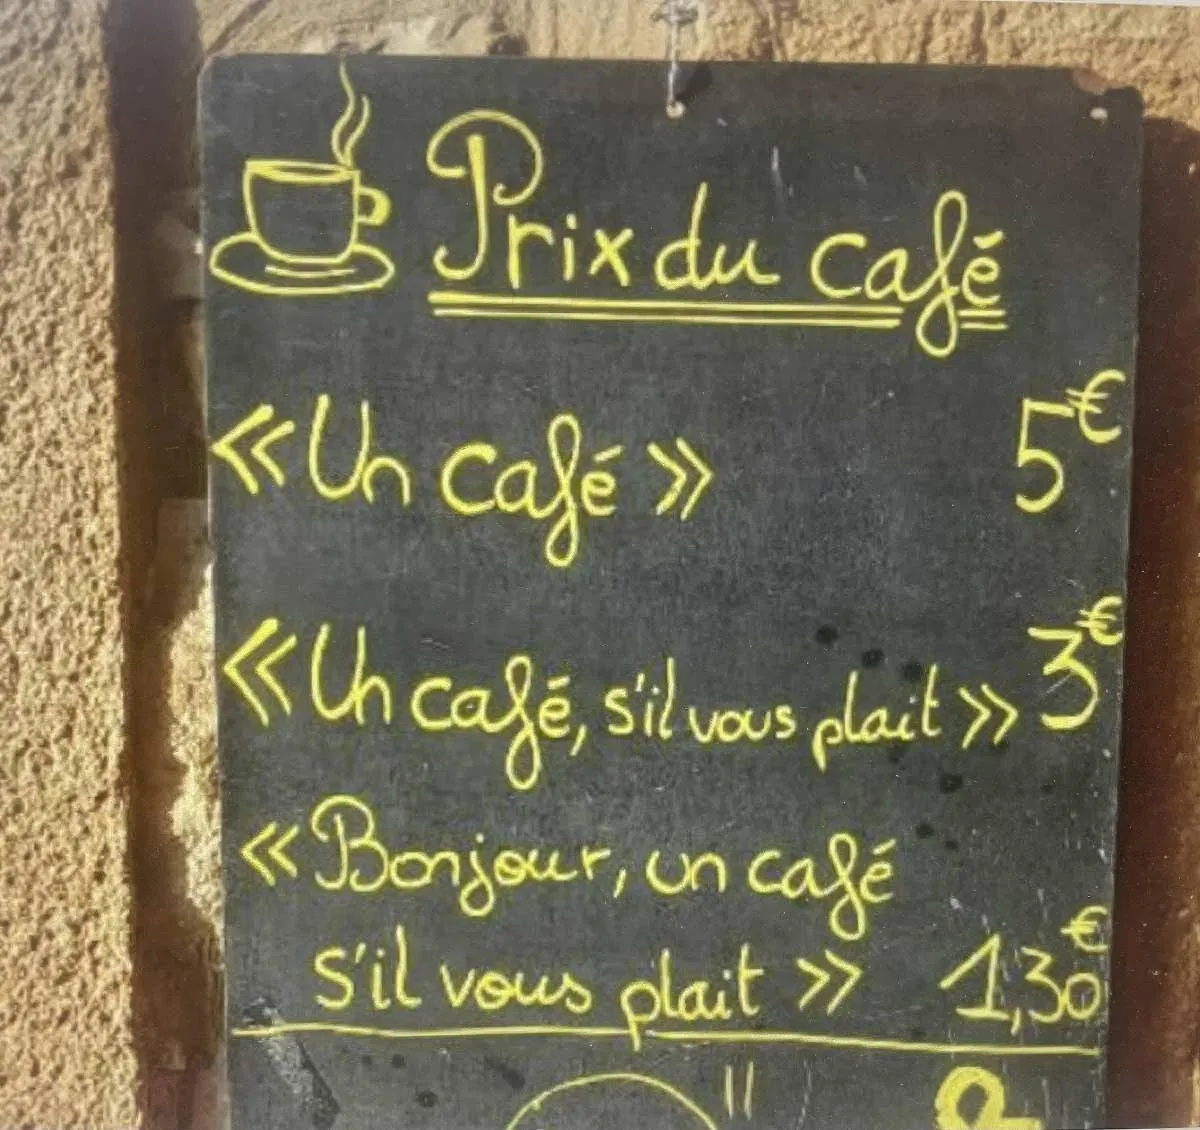 Prix du café
« Un café » 5€
« Un café, s'il vous plait » 3€
« Bonjour, un café
s'il vous plait » 1,30€